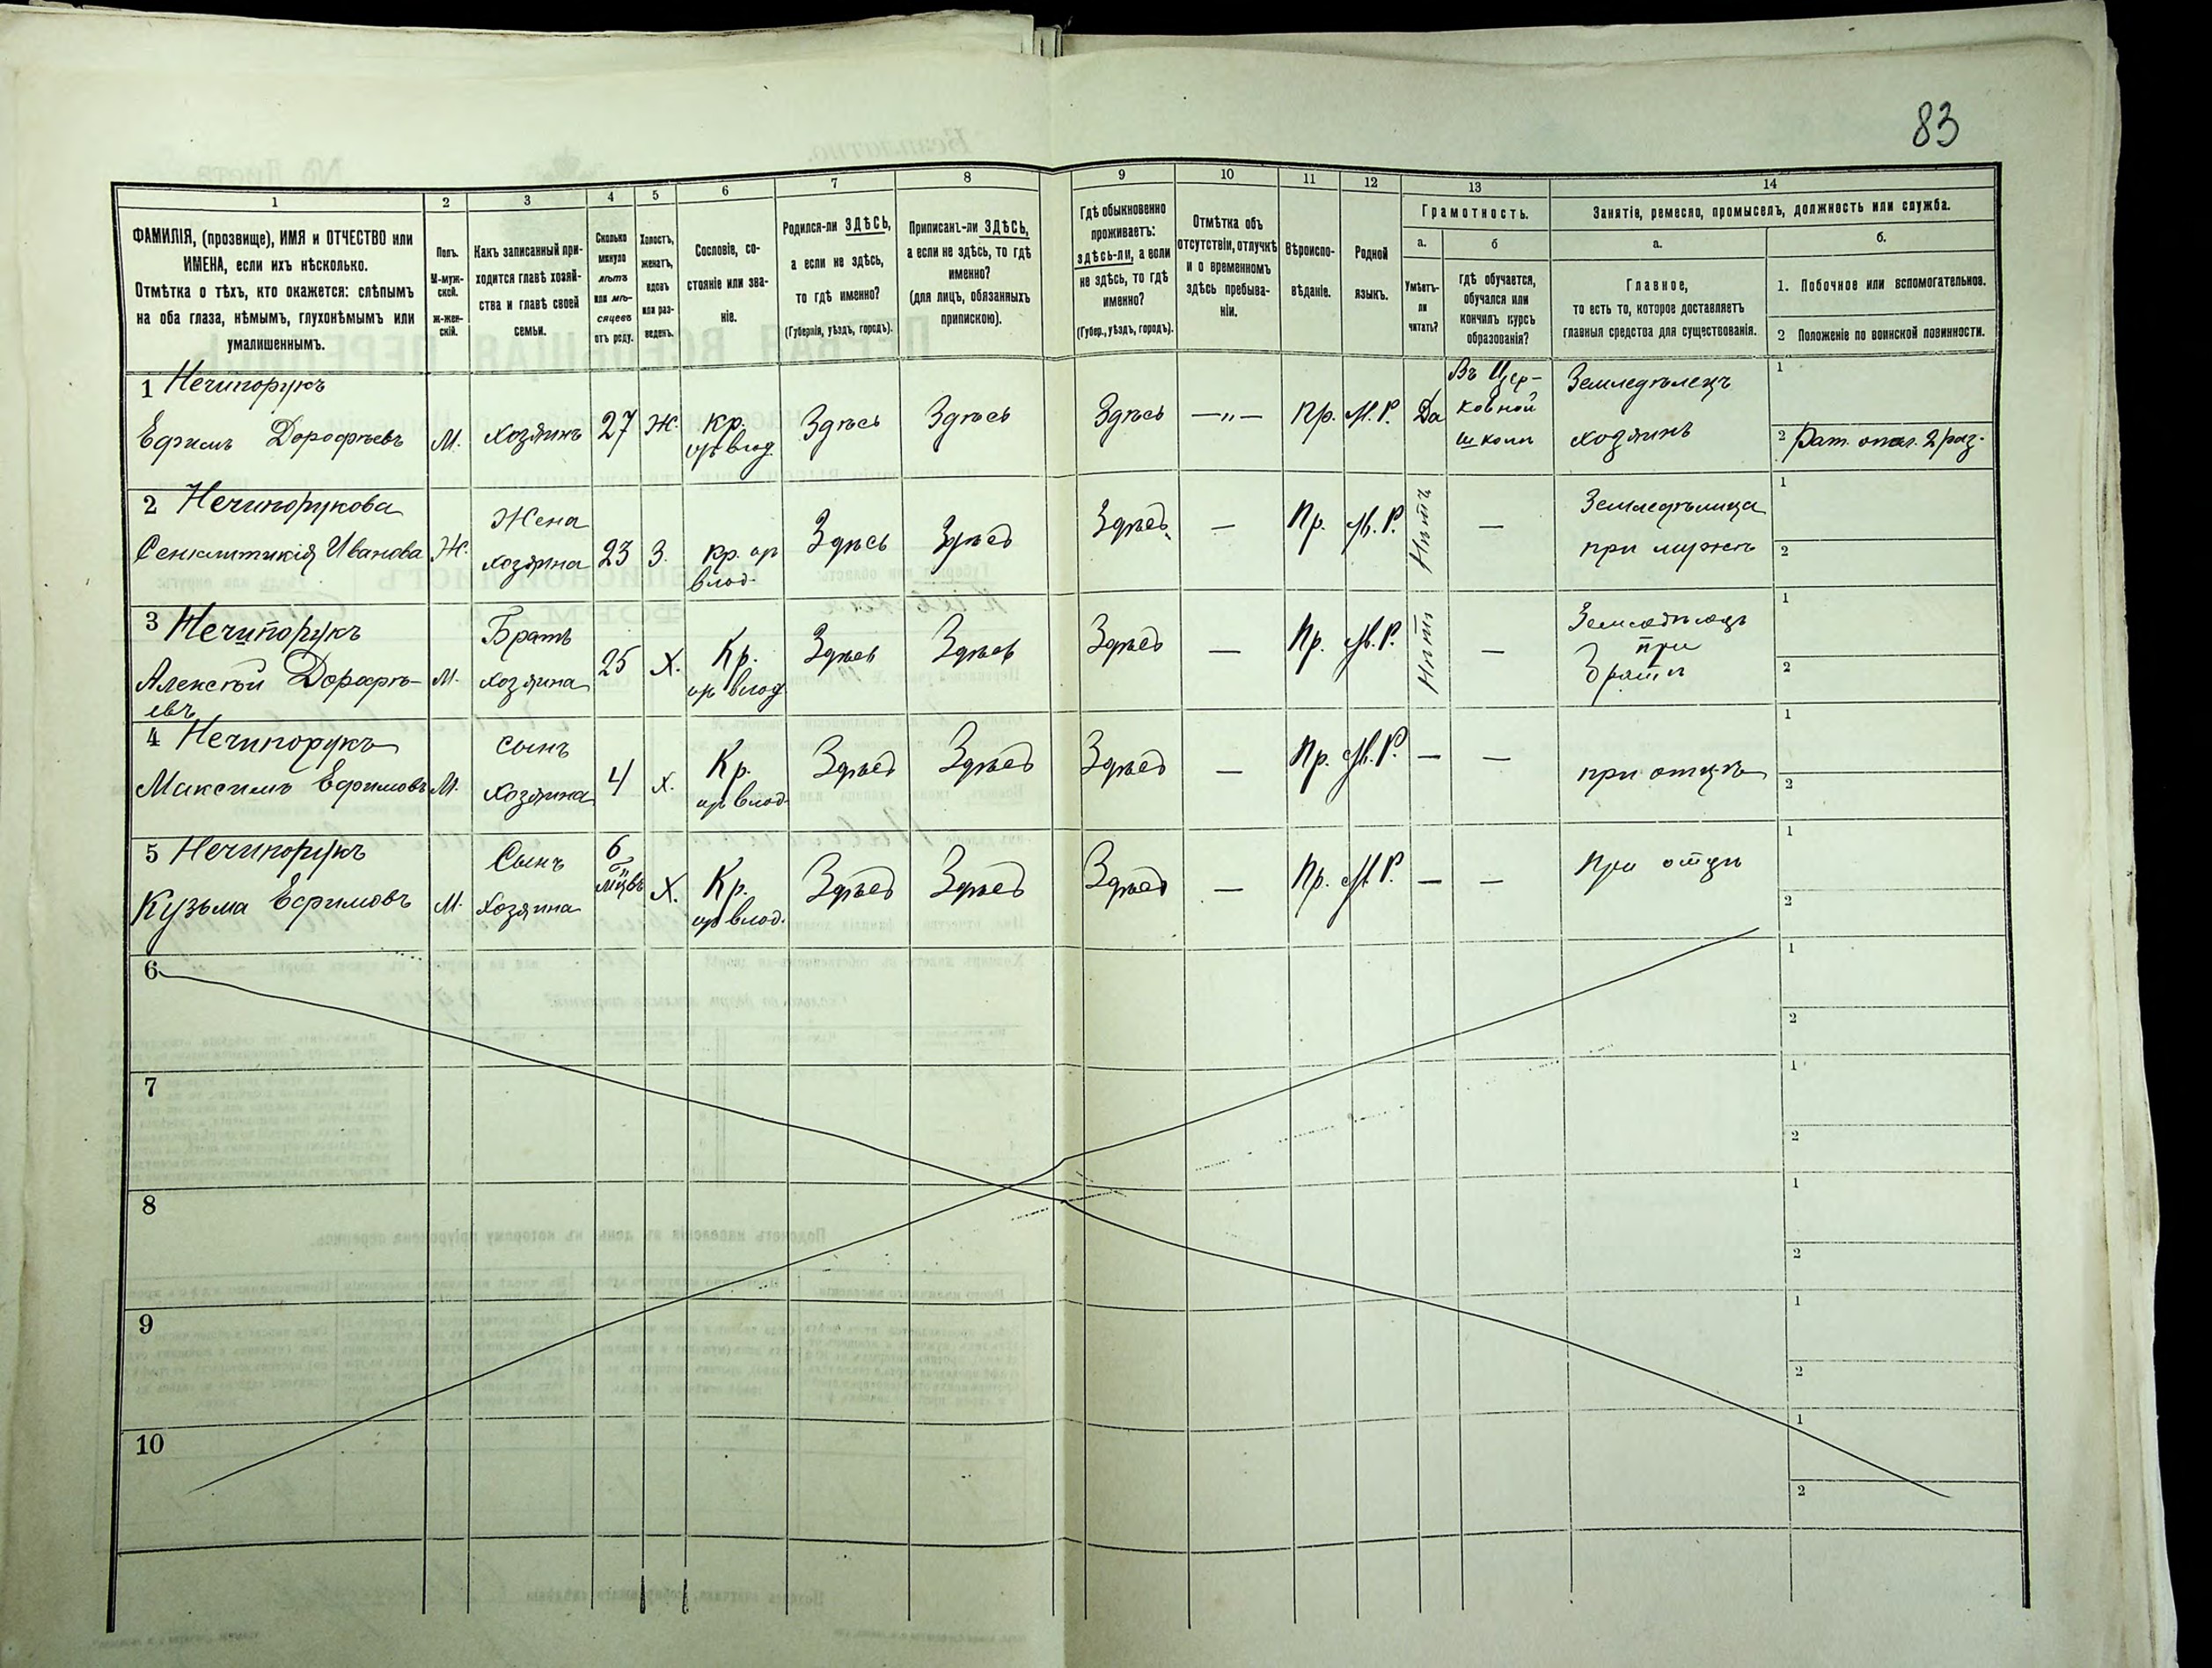 83
1
ФАМИЛІЯ, (прозвище), ИМЯ и ОТЧЕСТВО или
ИМЕНА, если ихъ нѣсколько.
Отмѣтка о тѣхъ, кто окажется: слѣпымъ
на оба глаза, нѣмымъ, глухонѣмымъ или
умалишеннымъ.
2
Полъ.
М-муж-
ской.
ж-жен-
скій.
3
Какъ записанный при-
ходится главѣ хозяй-
ства и главѣ своей
семьи.
4
Сколько
минуло
лѣтъ
или мѣ-
сяцевъ
отъ роду.
5
Холостъ,
женатъ,
вдовъ
или раз-
веденъ.
6
Сословіе, со-
стояніе или зва-
ніе.
7
Родился-ли ЗДѢСЬ,
а если не здѣсь,
то гдѣ именно?
(Губернія, уѣздъ, городъ).
8
Приписанъ-ли ЗДѢСЬ,
а если не здѣсь, то гдѣ
именно?
(для лицъ, обязанныхъ
припискою).
9
Гдѣ обыкновенно
проживаетъ:
здѣсь-ли, а если
не здѣсь, то гдѣ
именно?
(Губер., уѣздъ, городъ).
10
Отмѣтка объ
отсутствіи, отлучкѣ
и о временномъ
здѣсь пребыва-
ніи.
11
Вѣроиспо-
вѣданіе.
12
Родной
языкъ.
13
Грамотность.
а.
Умѣетъ-
ли
читать?
б
гдѣ обучается,
обучался или
кончилъ курсъ
образованія?
14
Занятіе, ремесло, промыселъ, должность или служба.
а.
Главное,
то есть то, которое доставляетъ
главныя средства для существованія.
б.
1. Побочное или вспомогательное.
2 Положеніе по воинской повинности.
1 Нечипорукъ
Ефимъ Дорофѣевъ
М.
хозяинъ
27
Ж.
Кр.
Здѣсь
Здѣсь
Здѣсь
—„—
Пр.
М. Р.
Да
Въ Цер-
ковной
школѣ
Земледѣлецъ
хозяинъ
1
2 Рат. опол. 2 раз.
2 Нечипорукова
Сенклитикія Иванова
Ж.
Жена
хозяина
23
З.
Кр.
влад.
Здѣсь
Здѣсь
Здѣсь
—
Пр.
М. Р.
Нѣтъ
—
Земледѣлица
при мужѣ
1
2
3 Нечипорукъ
Алексѣй Дорофѣ-
евъ
М.
Братъ
хозяина
25
Х.
Кр.
Здѣсь
Здѣсь
Здѣсь
—
Пр.
М. Р.
Нѣтъ
—
Земледѣлецъ
при
братѣ
1
2
4 Нечипорукъ
Максимъ Ефимовъ
М.
сынъ
хозяина
4
х.
Кр.
влад.
Здѣсь
Здѣсь
Здѣсь
—
Пр.
М. Р.
—
—
при отцѣ
1
2
5 Нечипорукъ
Кузьма Ефимовъ
М.
Сынъ
хозяина
6
мцвъ
Х.
Кр.
влад.
Здѣсь
Здѣсь
Здѣсь
—
Пр.
М. Р.
—
—
При отцѣ
1
2
6
1
2
7
1
2
8
1
2
9
1
2
10
1
2